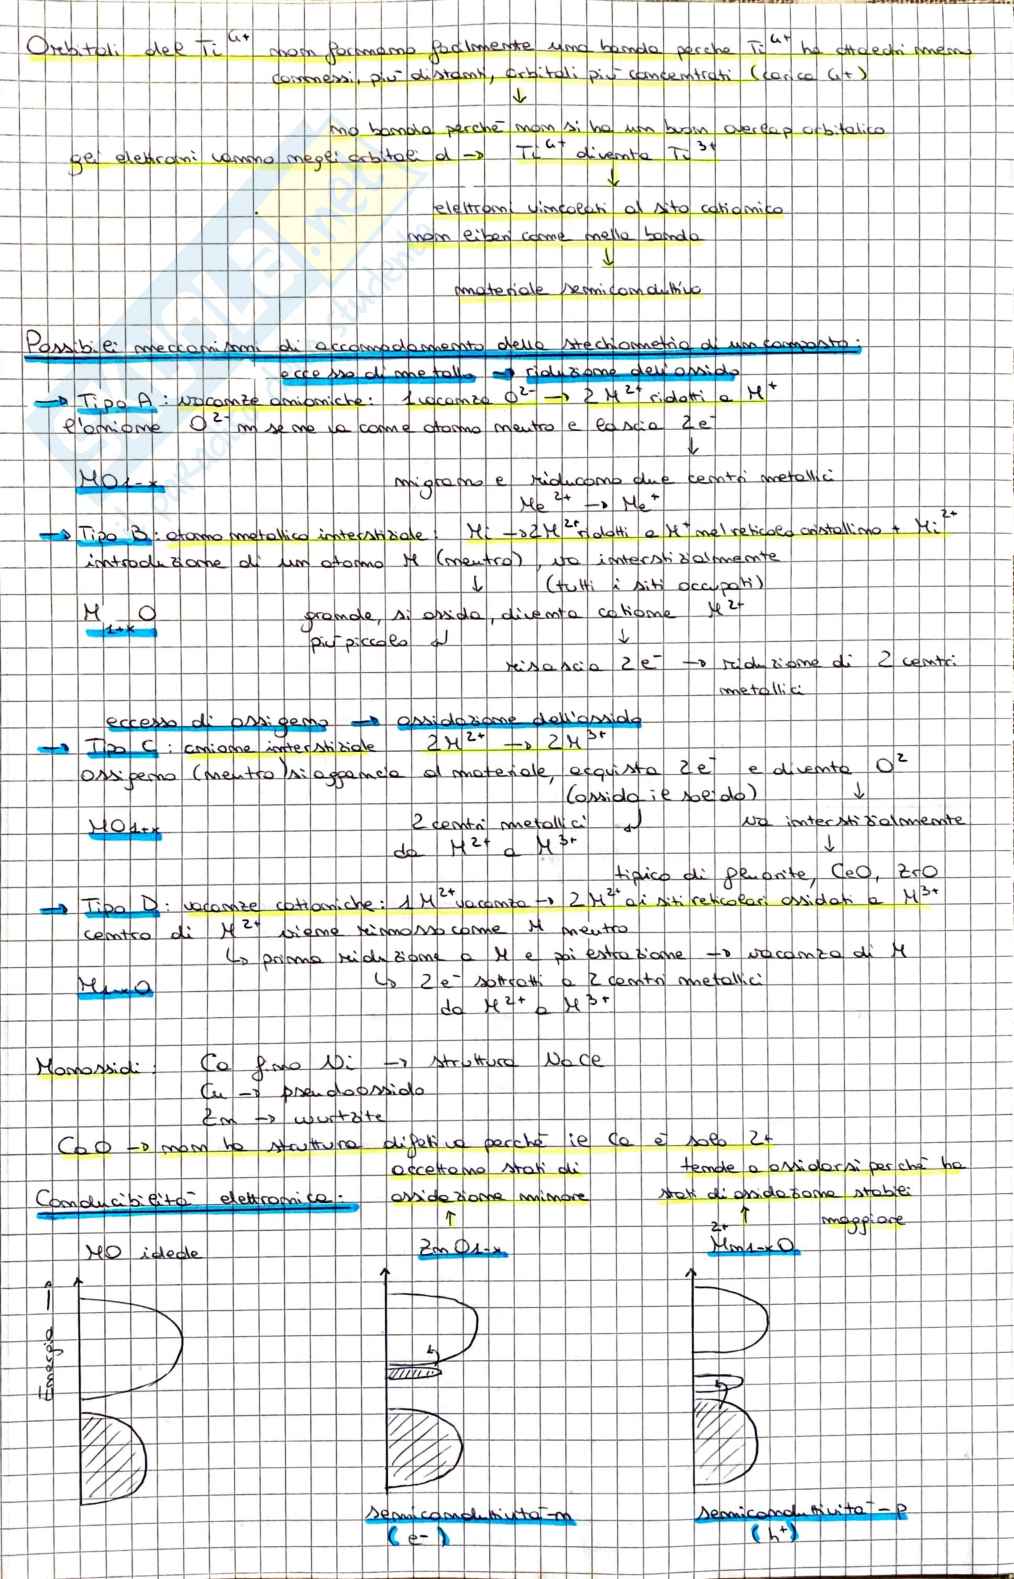 Orbitali del Ti⁴⁺ non formano facilmente una banda perche Ti⁴⁺ ha ottaedri meno
connessi, più distanti, orbitali più concentrati (carica 4+)
↓
no banda perché non si ha un buon overlap orbitalico
gli elettroni vanno negli orbitali d → Ti⁴⁺ diventa Ti³⁺
↓
elettroni vincolati al sito cationico
non liberi come nella banda
↓
materiale semiconduttivo
Possibili meccanismi di accomodamento della stechiometria di un composto:
eccesso di metallo → riduzione dell'ossido
→ Tipo A: vacanze anioniche: 1 vacanza O²⁻ → 2 M²⁺ ridotti a M⁺
l'anione O²⁻ se ne va come atomo neutro e lascia 2e⁻
↓
MO1-x migrano e riducono due centri metallici
Me²⁺ → Me⁺
→ Tipo B: atomo metallico interstiziale: Mi → 2M²⁺ ridotti a M⁺ nel reticolo cristallino + Mi²⁺
introduzione di un atomo M (neutro), va interstizialmente
↓ (tutti i siti occupati)
M1+xO grande, si ossida, diventa catione M²⁺
più piccolo ↲ ↓
rilascia 2e⁻ → riduzione di 2 centri
metallici
eccesso di ossigeno → ossidazione dell'ossido
→ Tipo C: anione interstiziale 2M²⁺ → 2M³⁺
ossigeno (neutro) si aggancia al materiale, acquista 2e⁻ e diventa O²
(ossida il solido) ↓
MO1+x 2 centri metallici ↲ va interstizialmente
da M²⁺ a M³⁺ ↓
tipico di fluorite, CeO, ZrO
→ Tipo D: vacanze cationiche: 1M²⁺ vacanza → 2M²⁺ ai siti reticolari ossidati a M³⁺
centro di M²⁺ viene rimosso come M neutro
↳ prima riduzione a M e poi estrazione → vacanza di M
M1-xO ↳ 2e⁻ sottratti a 2 centri metallici
da M²⁺ a M³⁺
Monossidi: Ca fino Ni → struttura NaCl
Cu → pseudoossido
Zn → wurtzite
CaO → non ha struttura difettiva perché il Ca è solo 2+
accettano stati di tende a ossidarsi perché ha
Conducibilità elettronica: ossidazione minore stati di ossidazione stabili
↑ ↑ maggiore
MO ideale ZnO1-x 2+ Mn1-xO
Energia →
semiconduttività-n semiconduttività-p
(e-) (h⁺)